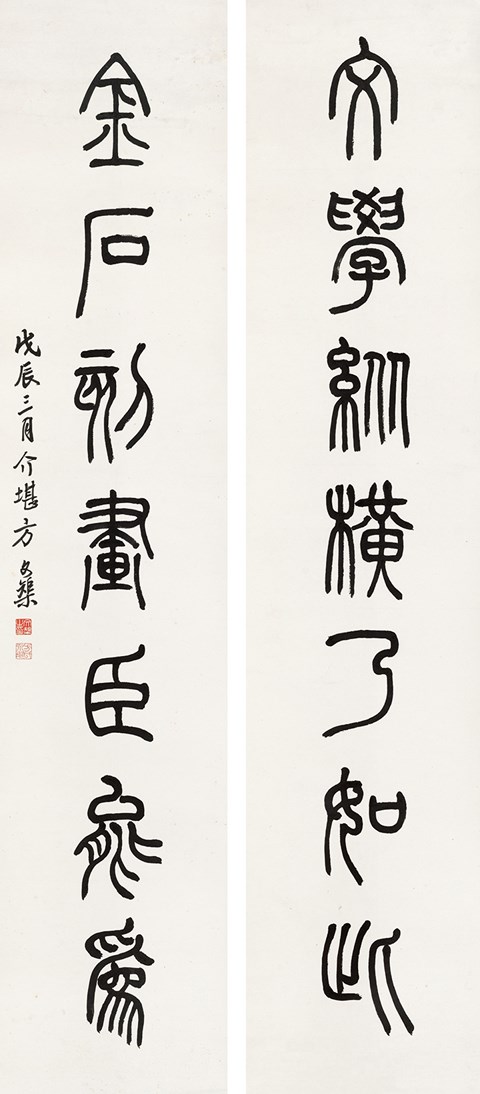 文學縱橫乃如此
金石刻畫臣能為
戊辰三月介堪方文榘